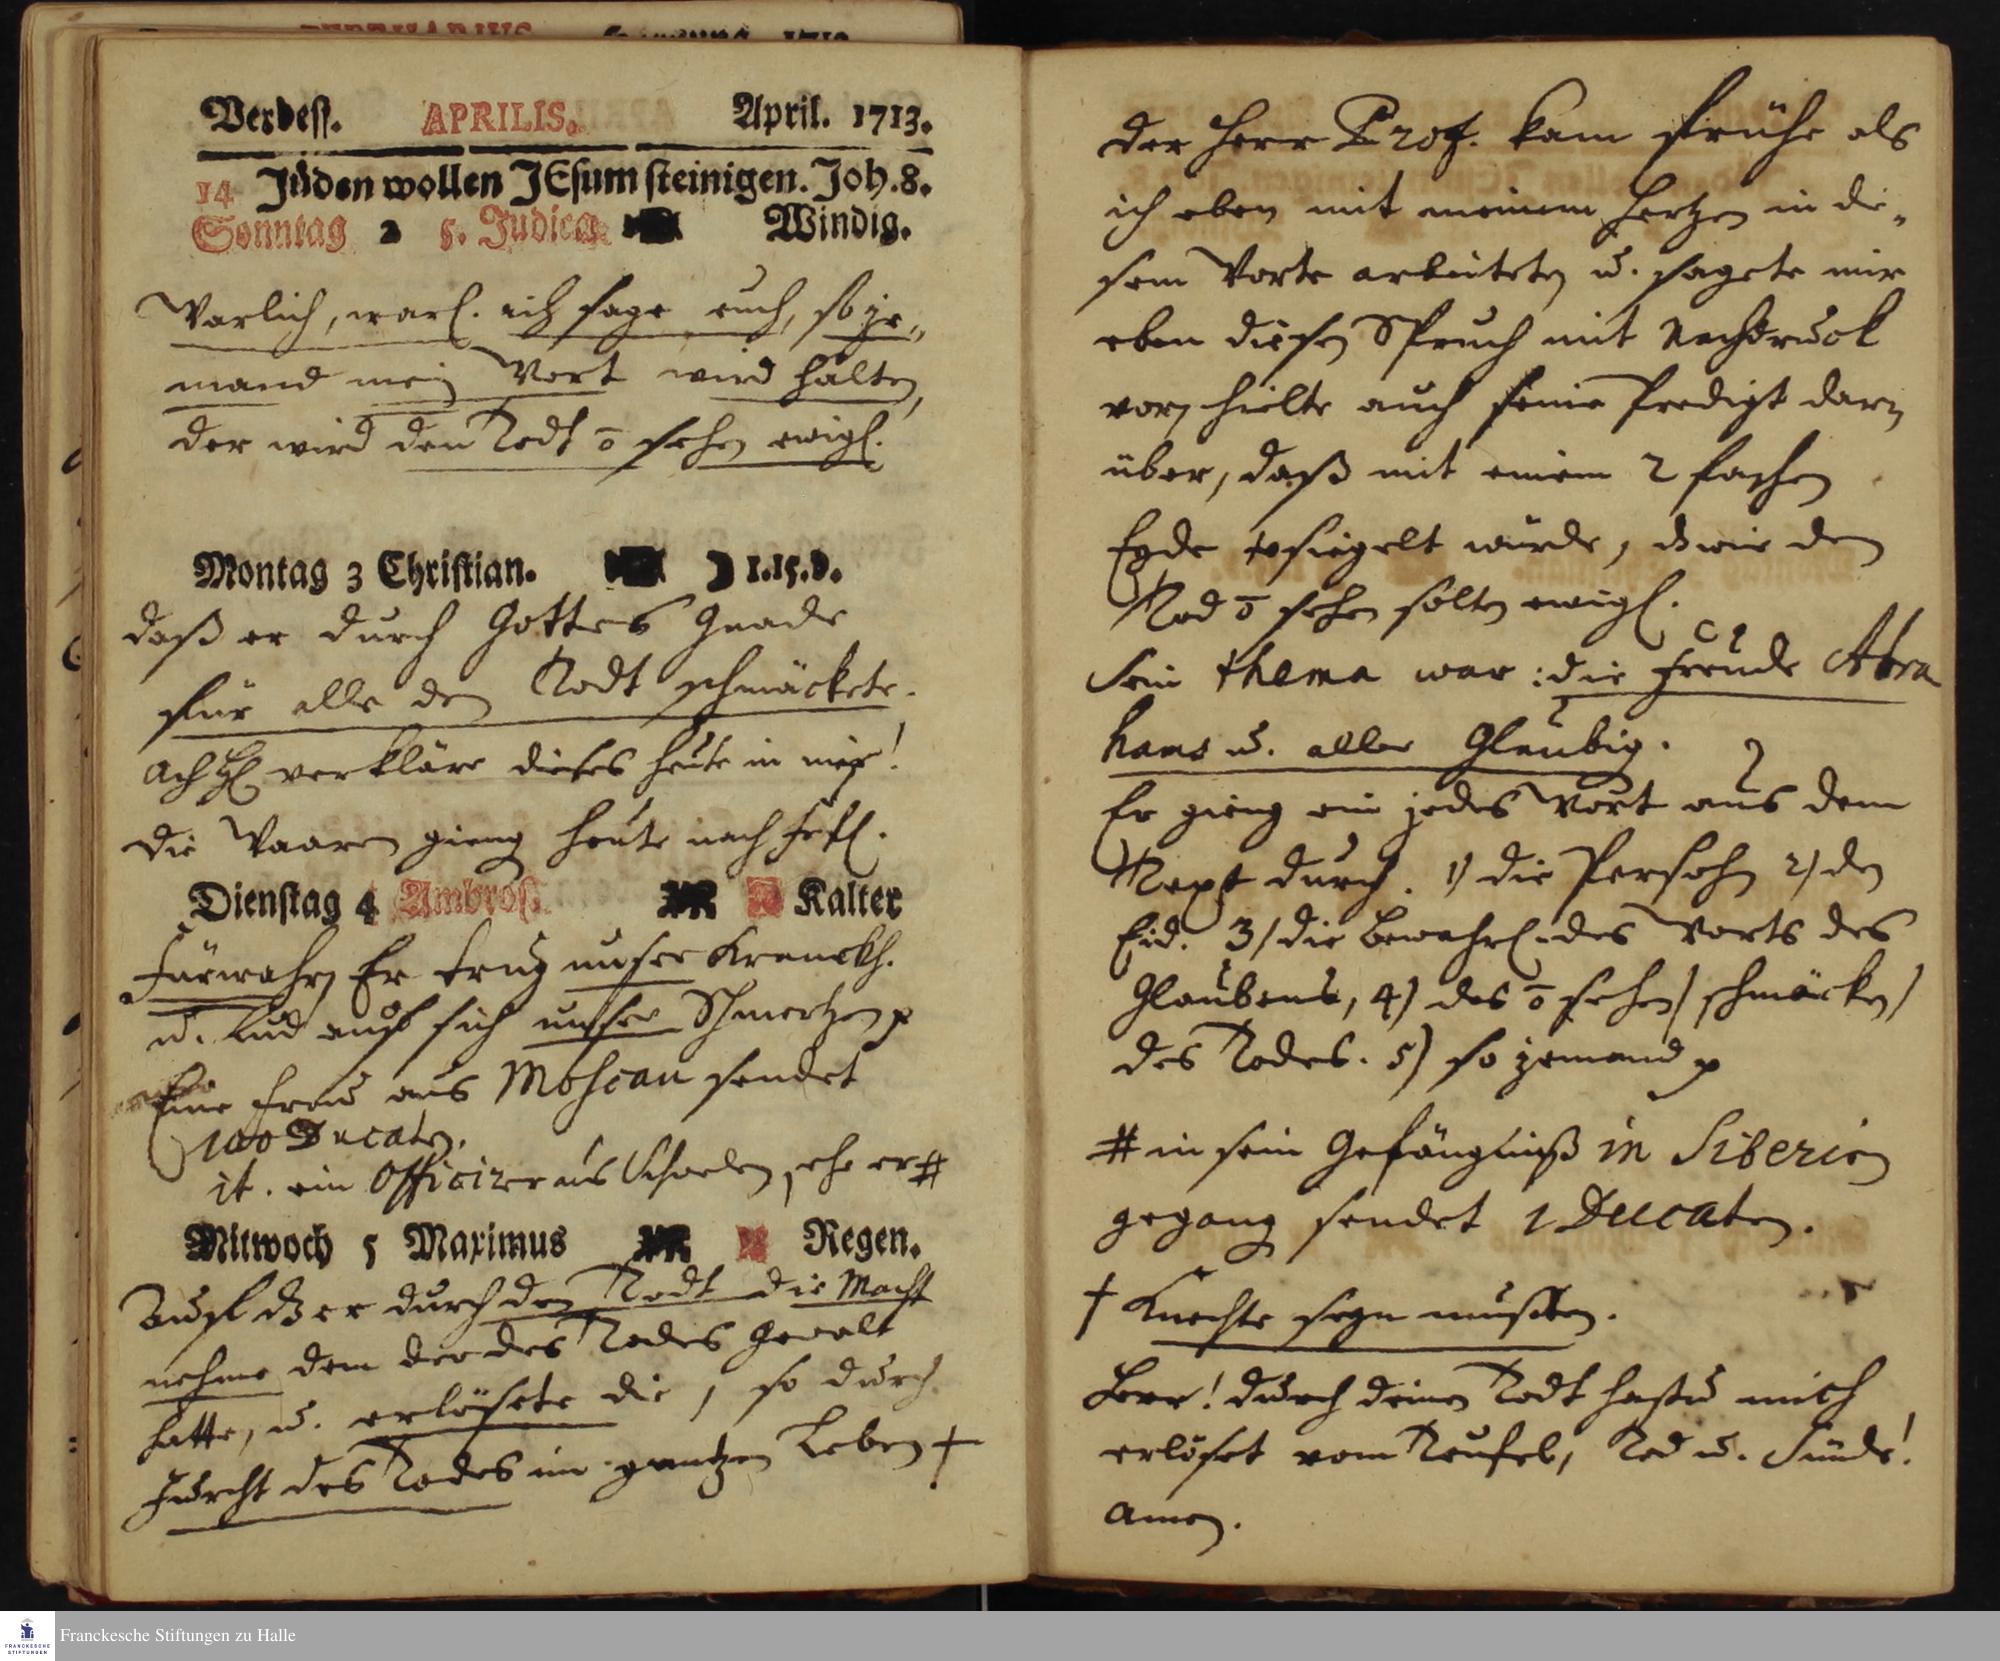 Verbess. APRILIS. April. 1713.
14 Jüden wollen JEsum steinigen. Joh. 8.
Sonntag 2 5. Judica Windig.
Warlich, warl. ich sage euch, so je„
mand mein Wort wird halten,
der wird den Todt ō sehen ewigl.
Montag 3 Christian. 1.15.v.
daß er durch Gottes Gnade
für alle den Todt schmäckete.
Ach verkläre dieses heute in mir!
die Waaren gieng heute nach
Dienstag 4 Ambros. Kalter
Fürwahr Er trug unser Kranckh.
u. lud auf sich unser Schmertzen p
Eine Frau aus Moscau sendet
100 Ducaten.
it. ein Officirer aus Schweden, ehe er #
Mittwoch 5 Maximus Regen.
Auf dz er durch den Todt die Macht
nehme dem der des Todes Gewalt
hatte, u. erlösete die, so durch
Furcht des Todes im gantzen Leben †
Der Herr Prof. kam frühe als
ich eben mit meinem Hertzen in die„
sem Worte arbeitete u. sagete mir
eben diesen Spruch mit Nachdruck
vor, hielte auch seine Predigt dar
über, daß mit einem 2 fachen
Eyde vsiegelt würde, dz wir den
Tod ō sehen solten ewigl.
Sein thema war: die Freude Abra
hams u. aller Gläubig.
Er gieng ein jedes Wort aus dem
Text durch. 1) die Persohn 2) den
Eid. 3) die Bewahrl. des Worts des
Glaubens, 4) des ō sehen) schmäcken)
des Todes. 5) so jemand p
# in sein Gefängniß in Siberien
gegang sendet 1 Ducaten.
† Knechte seyn musten.
Herr! durch deinen Todt hastu mich
erlöset vom Teufel, Tod u. Sünde!
Amen.
FRANCKESCHE
STIFTUNGEN
Franckesche Stiftungen zu Halle